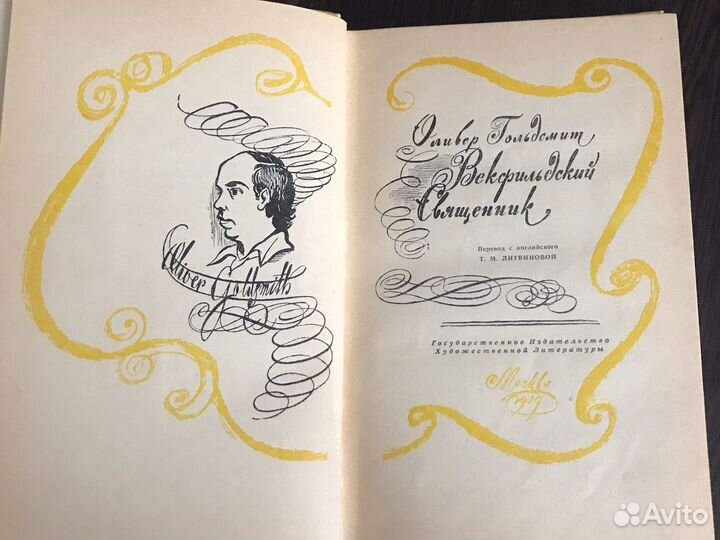 Oliver Goldsmith
Оливер Гольдсмит
Векфильдский
Священник
Перевод с английского
Т. М. ЛИТВИНОВОЙ
Государственное Издательство
Художественной Литературы
Москва
1959
Avito